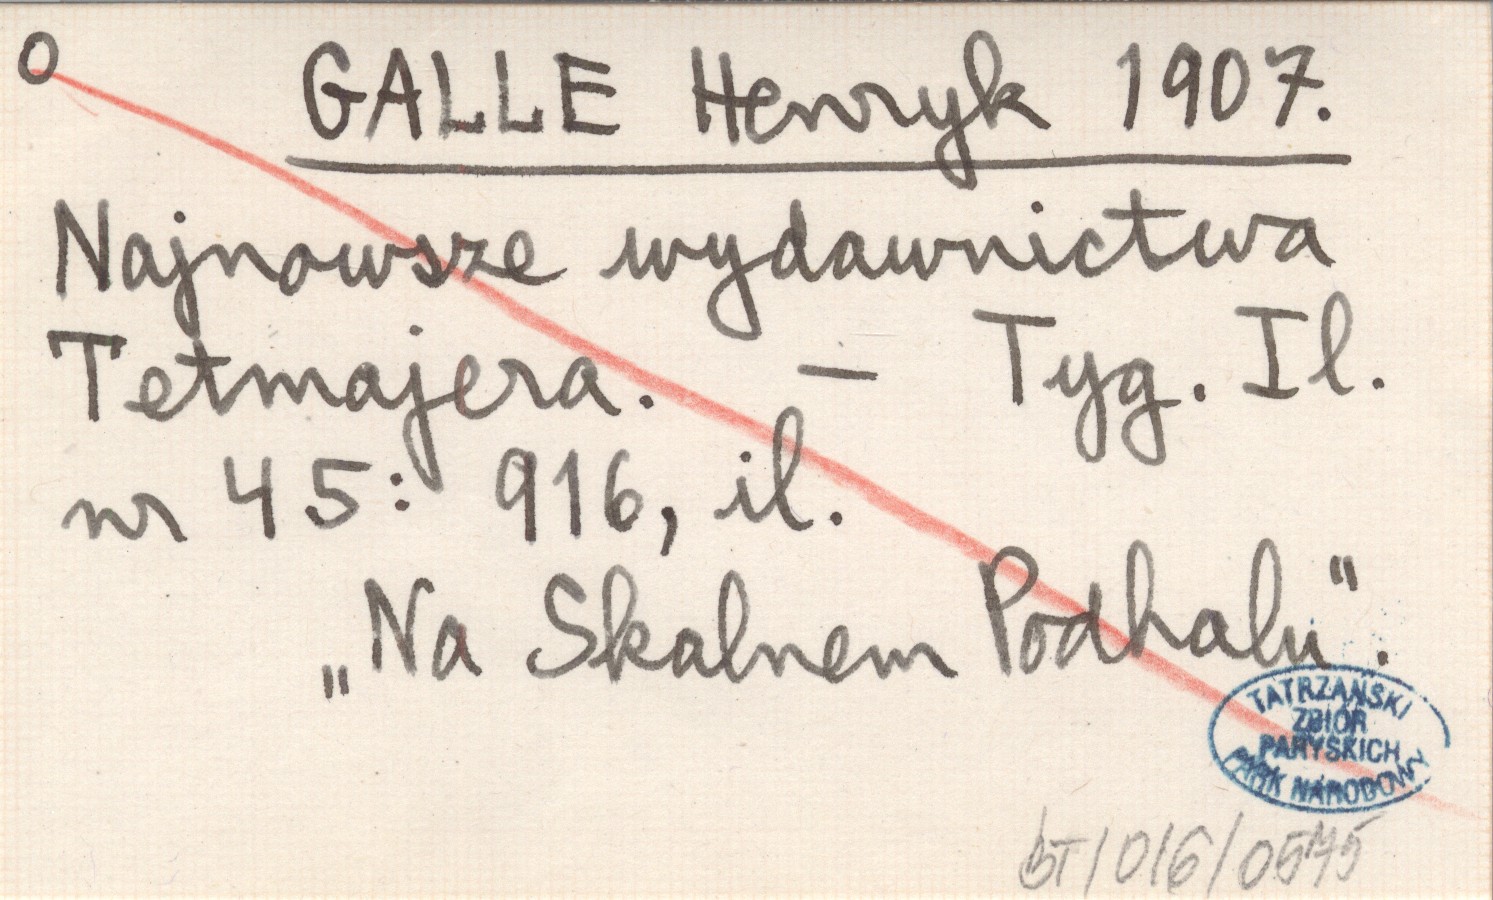 O GALLE Henryk 1907.
Najnowsze wydawnictwa
Tetmajera. — Tyg. Il.
nr 45: 916, il.
„Na Skalnem Podhalu".
TATRZAŃSKI
ZBIÓR
PARYSKICH
PARK NARODOWY